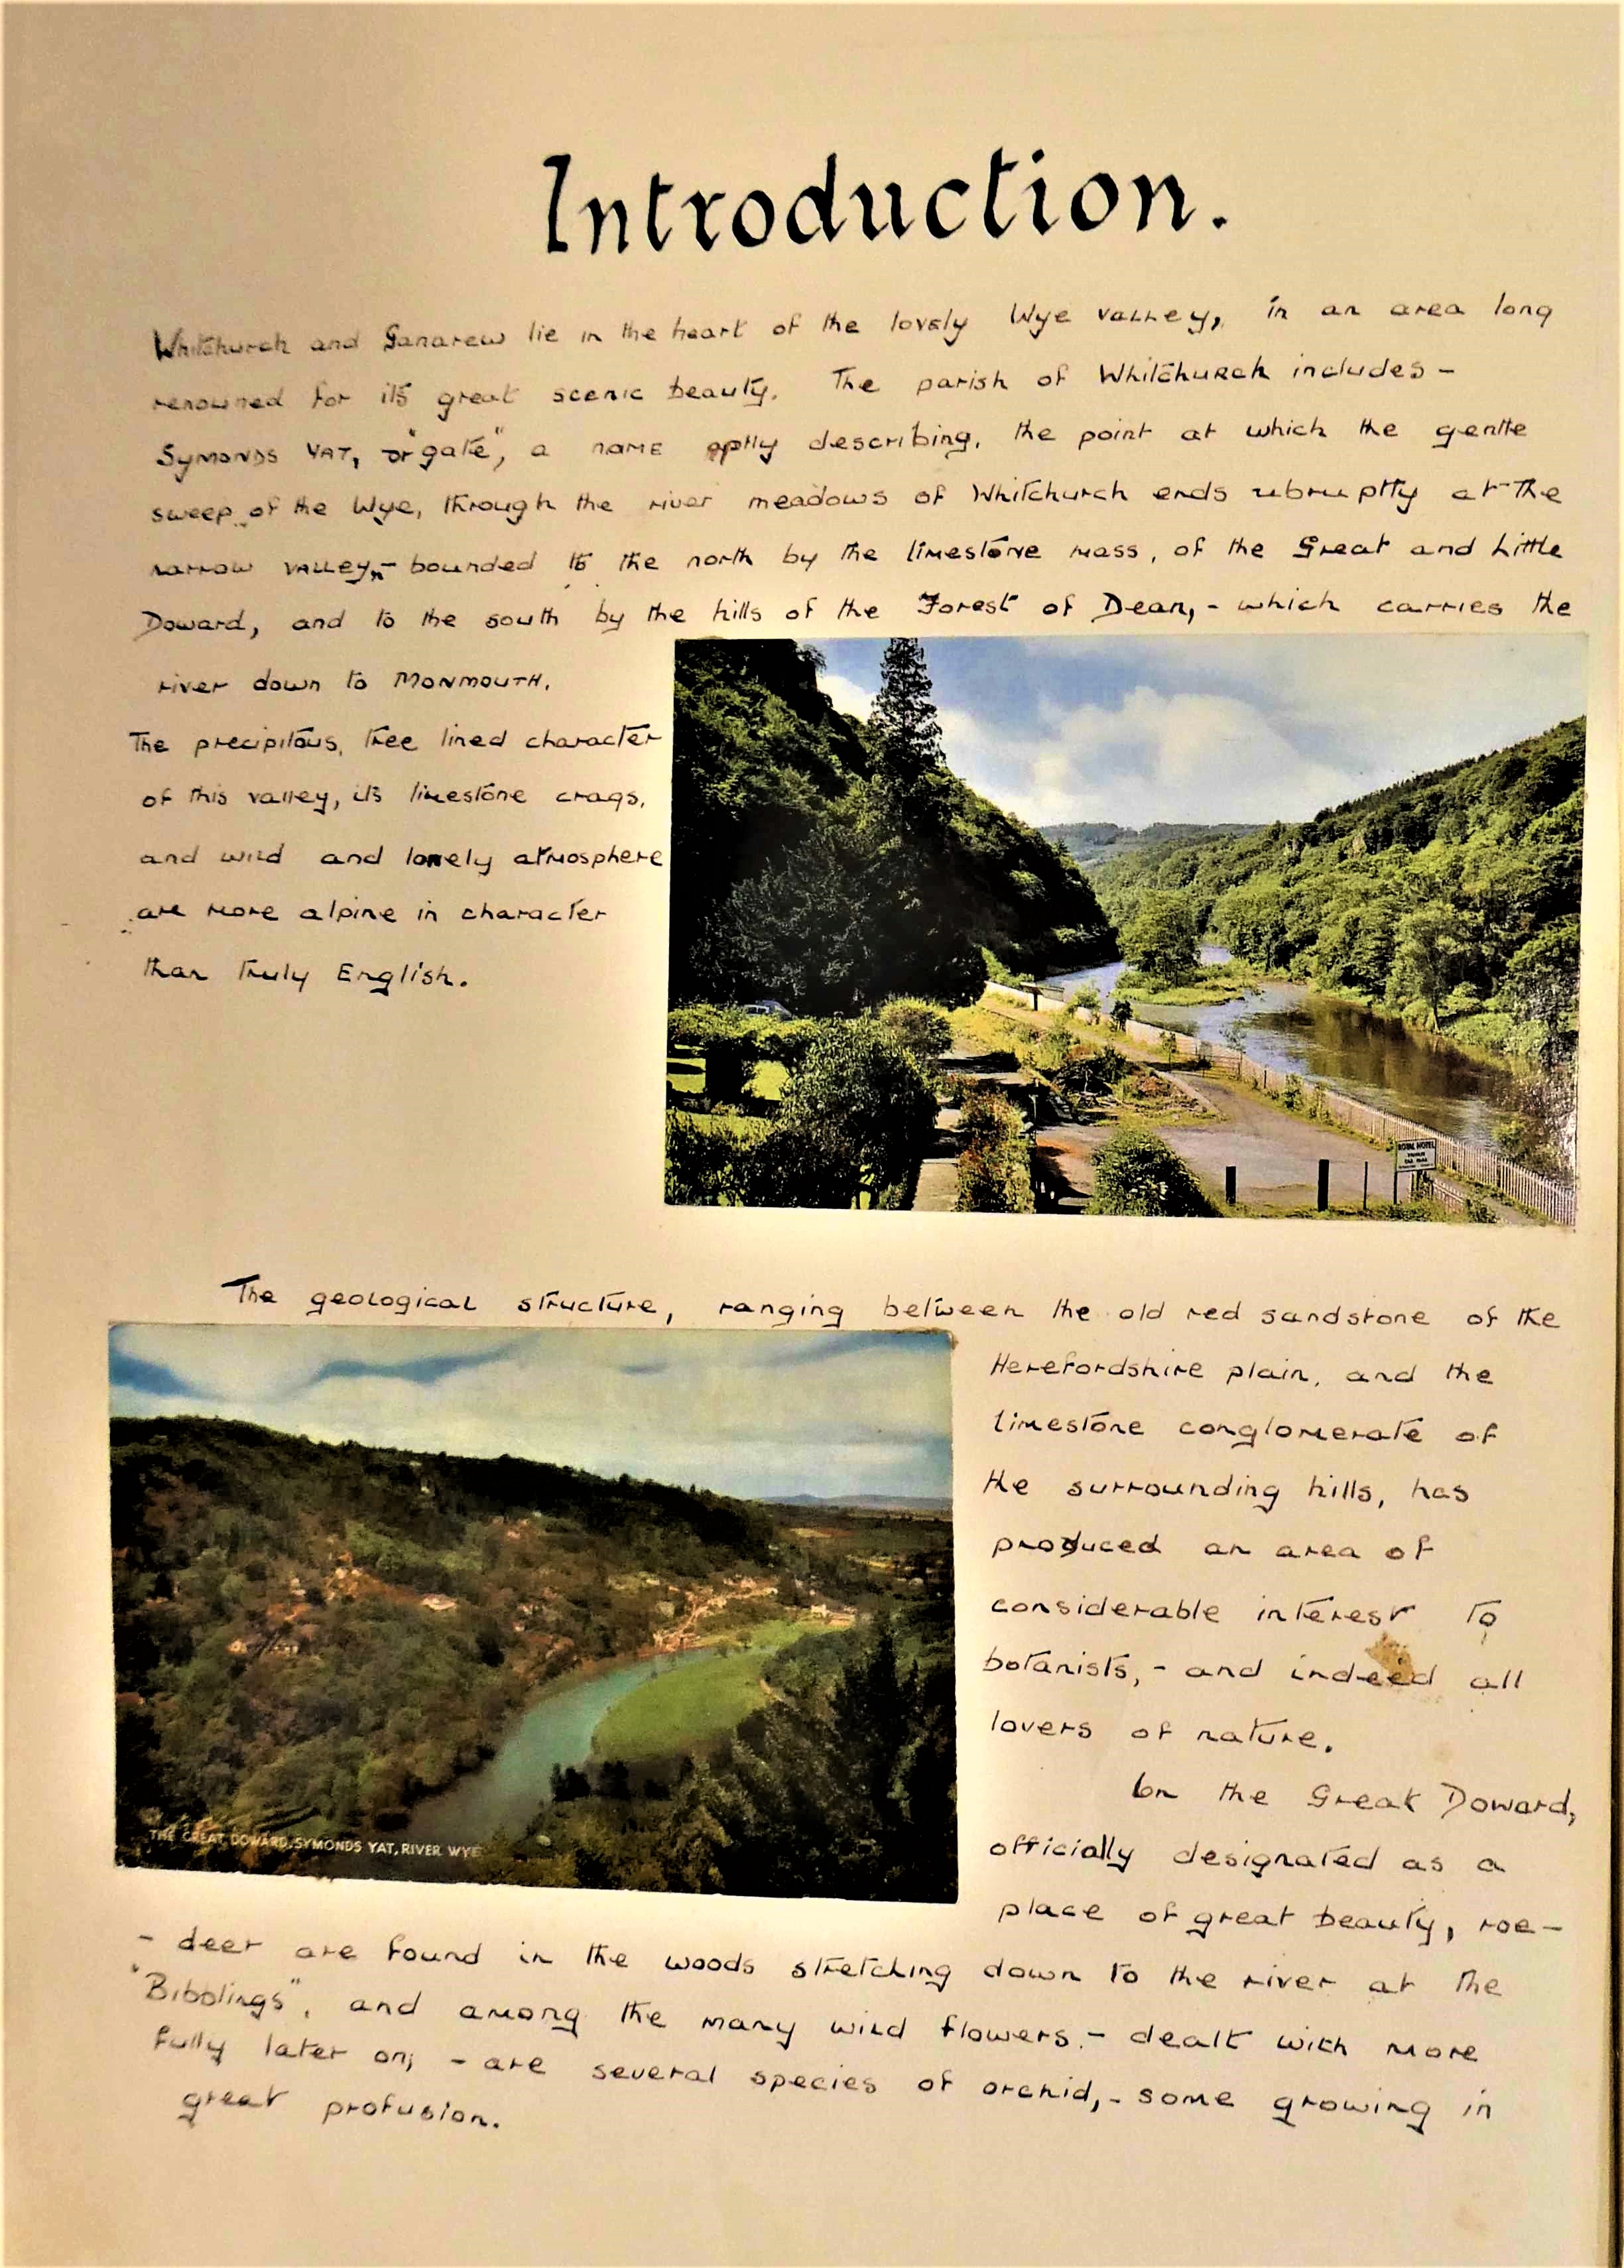 Introduction.
Whitchurch and Ganarew lie in the heart of the lovely Wye valley, in an area long
renowned for its great scenic beauty. The parish of Whitchurch includes -
Symonds Yat, or "gate", a name aptly describing, the point at which the gentle
sweep of the Wye, through the river meadows of Whitchurch ends abruptly at the
narrow valley, - bounded to the north by the limestone mass, of the Great and Little
Doward, and to the south by the hills of the Forest of Dean, - which carries the
river down to Monmouth.
The precipitous, tree lined character
of this valley, its limestone crags,
and wild and lonely atmosphere
are more alpine in character
than truly English.
ROYAL HOTEL
The geological structure, ranging between the old red sandstone of the
Herefordshire plain, and the
limestone conglomerate of
the surrounding hills, has
produced an area of
considerable interest to
botanists, - and indeed all
lovers of nature.
On the Great Doward,
officially designated as a
place of great beauty, roe -
THE GREAT DOWARD, SYMONDS YAT, RIVER WYE
- deer are found in the woods stretching down to the river at the
"Bibblings", and among the many wild flowers. - dealt with more
fully later on; - are several species of orchid, - some growing in
great profusion.